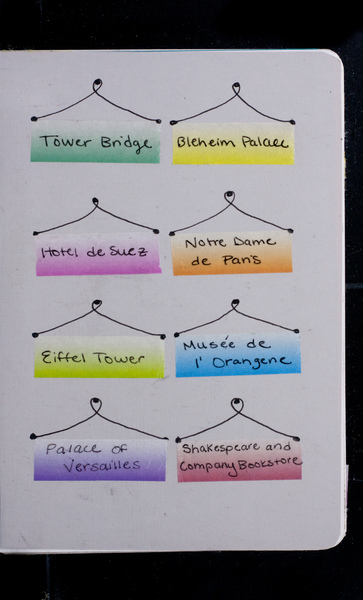 Tower Bridge
Bleheim Palace
Hotel de Suez
Notre Dame
de Paris
Eiffel Tower
Musée de
l'Orangerie
Palace of
Versailles
Shakespeare and
Company Bookstore